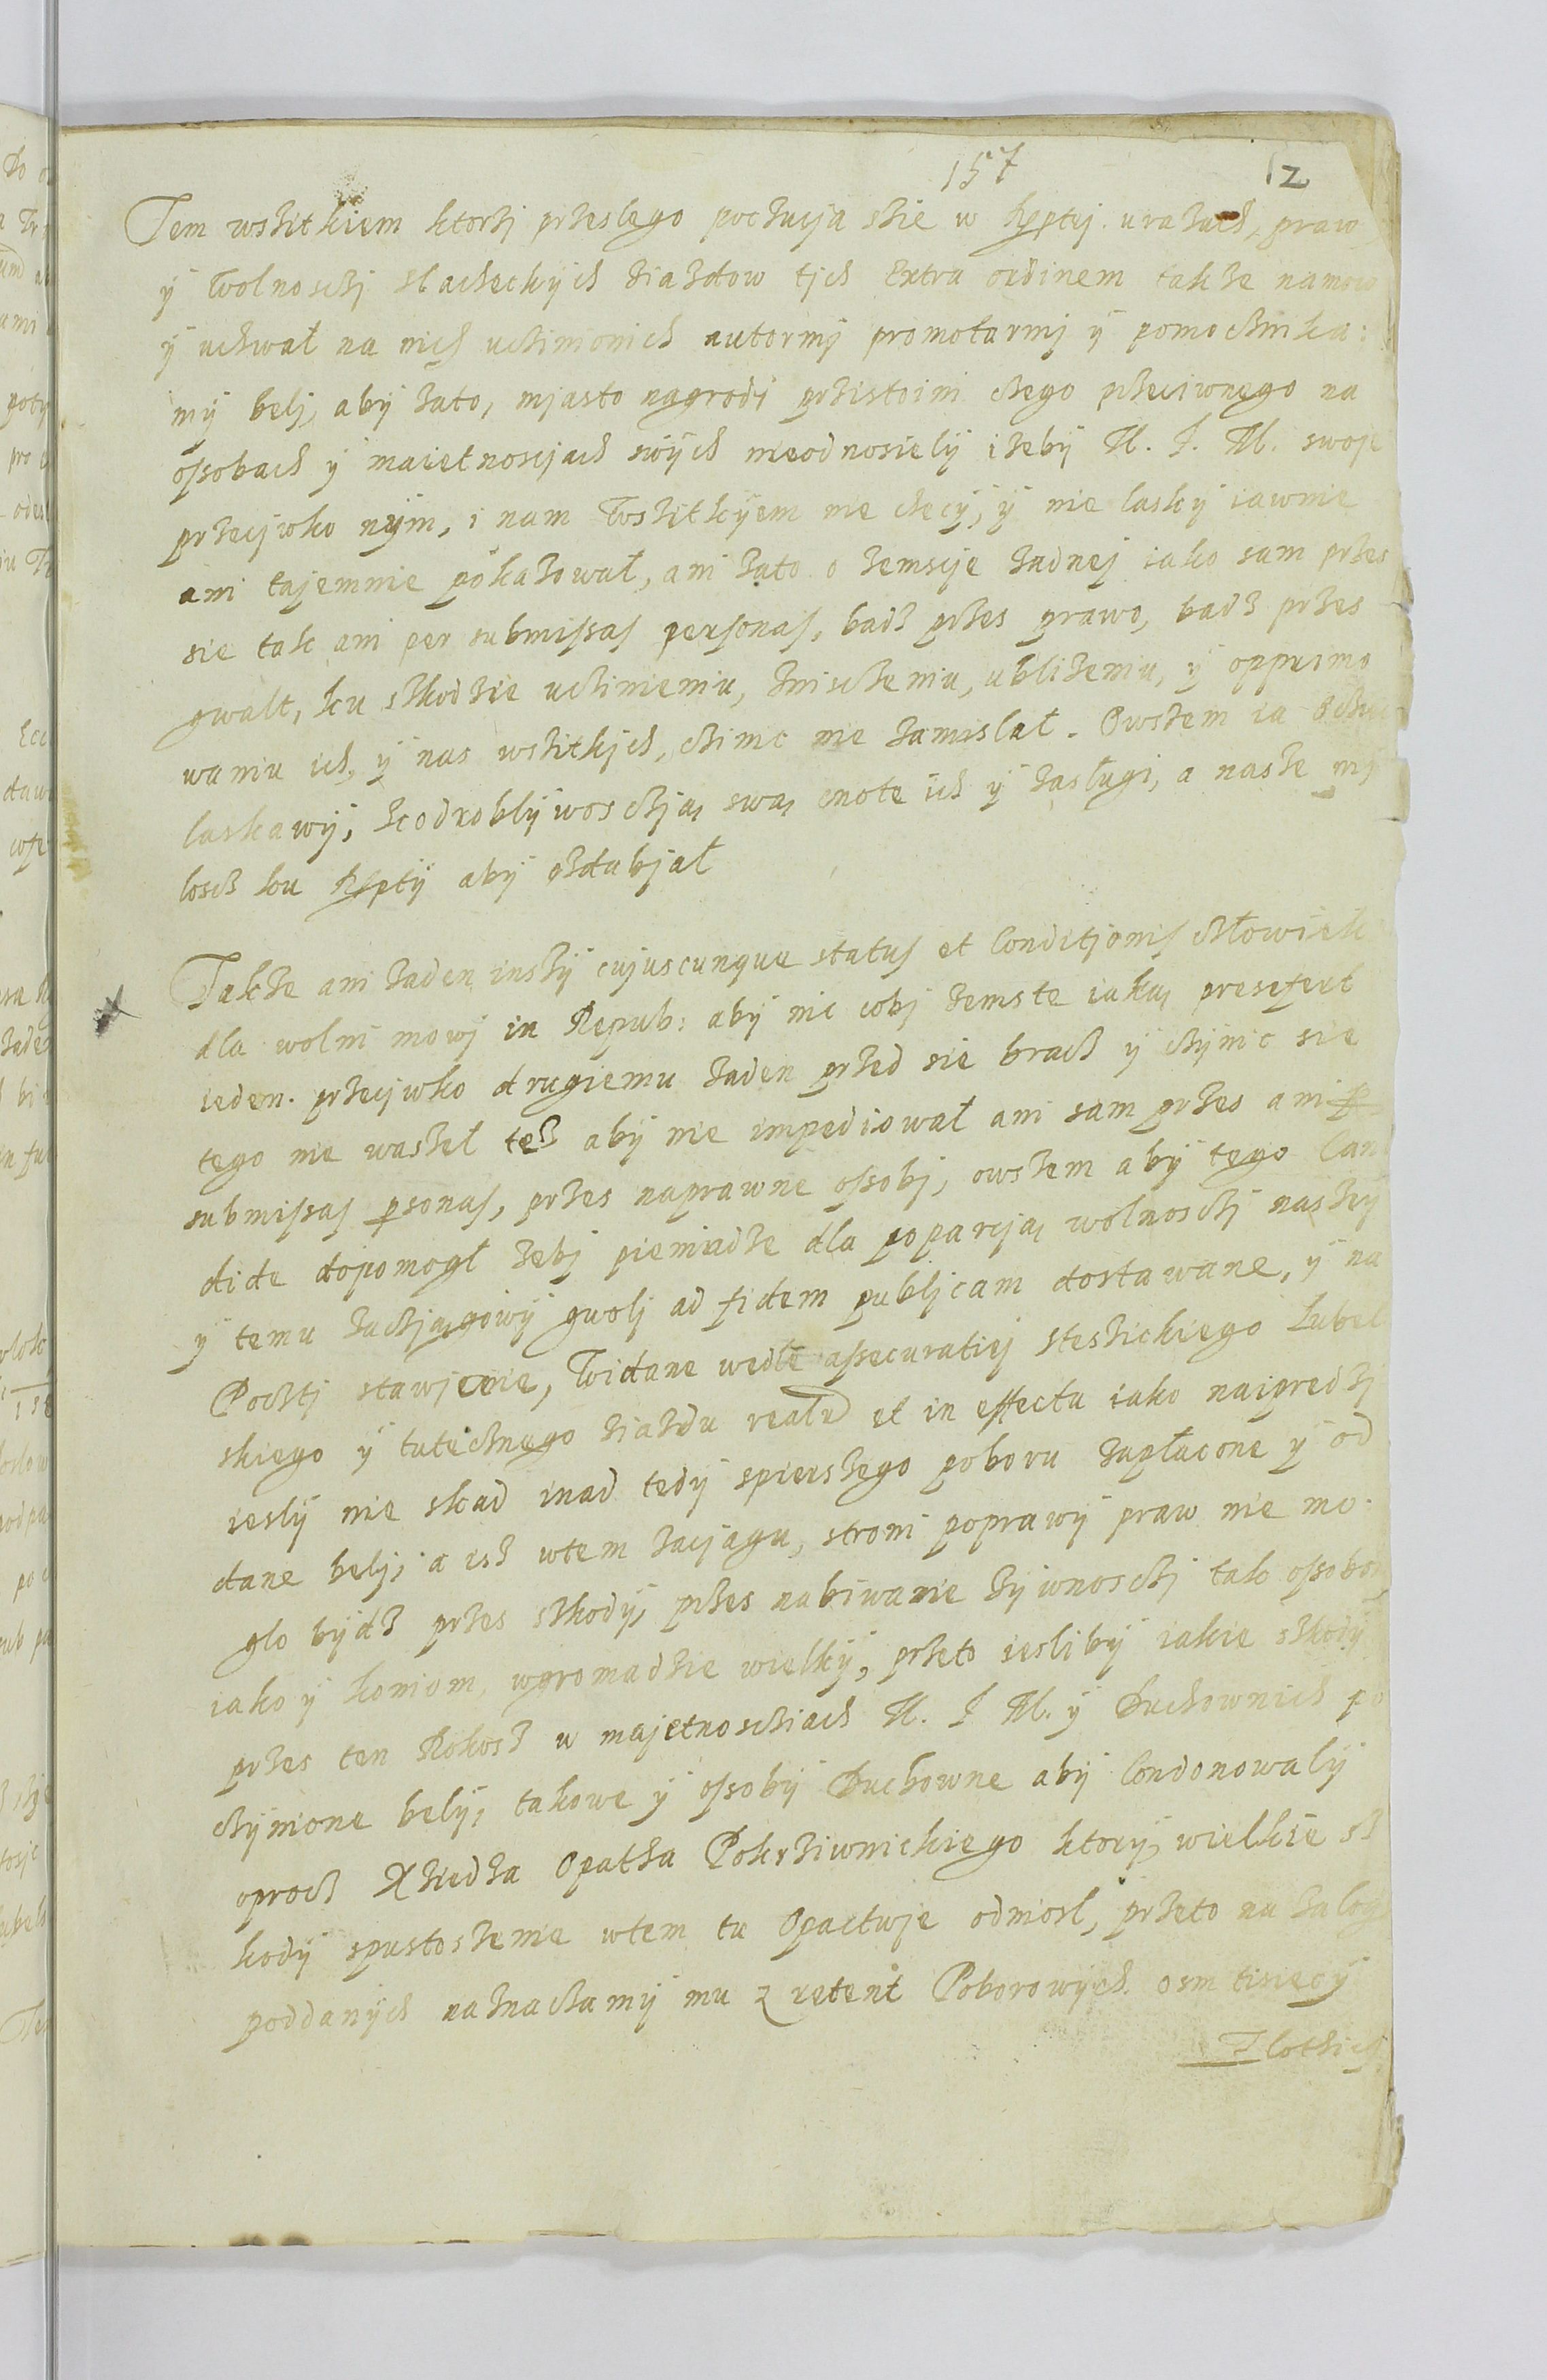 157 12
Tem wszitkiem ktorzj przeslego poczucja szie w Rzptej. urazach, praw
ÿ Wolnosczj slacheckÿch ziazdow tjch Extra ordinem takze namow
ÿ uchwał na nich uczinionich autormj promotarmj ÿ pomocznika:
mÿ belj, abÿ zato, mjasto nagrodi przistoini czego przeciwnego na
ossobach ÿ maietnoscjach swÿch nieodnosielÿ izebÿ K. J. M. swoje
przecjwko nÿm, i nam Wszitkÿem nie checÿ, ÿ nie laskÿ iawnie
ani tajemnie pokazował, ani zato o zemscje zadnej iako sam przes
sie tak ani per submissas personas, badz przes prawo, badz przes
gwalt, ku szkodzie uczinieniu, zniszczeniu, ublizeniu, ÿ opprimo
waniu ich, ÿ nas wszitkjch, czinic nie zamislał. Owszem ia
laskawÿ, sczodroblÿwosczja swa cnote ich ÿ zasługi, a nasze mÿ
loscz ku Rzptÿ abÿ ozdabjał
Takze ani zaden inszÿ cujuscunque status et Conditjonis człowiek
dla wolni mowj in Repub: abÿ nic cobj zemste iaka presefert
ieden. przecjwko drugiemu zaden przed sie bracz ÿ czÿnic sie
tego nie waszeł tez abÿ nie impediował ani sam przes ani p
submissas psonas, przes naprawne ossobj, owszem abÿ tego Can
dide dopomogł zebj pieniadze dla poparcja wolnosczj naszeÿ
ÿ temu zaczjagowÿ gwolj ad fidem publjcam dostawane, ÿ na
Pocztj stawjenie, Widane wedle assecuratiej steszickiego Lubel
skiego ÿ tutecznego ziazdu realr et in effectu iako naipredzj
ieslÿ nie skad inad tedÿ spierszego poboru zapłacone ÿ od
dane belj, a isz wtem zacjagu, stroni poprawÿ praw nie mo:
glo bÿdz przes szkodÿ, przes nabiwanie zÿwnosczj tak ossobom
iako ÿ koniom, wgromadzie wielkÿ, przeto ieslibÿ iakie szkodÿ
przes ten Rokosz w majetnoscziach K. J M. ÿ Duchownich po
czÿnione belÿ, takowe ÿ ossobÿ Duchowne abÿ Condonowalÿ
oprocz Xiedza Opatha Pokrziwnickiego ktorÿ, wielkie sz
kodÿ spustoszenie wtem tu Opactwje odniosł, przeto na zalogę
poddanÿch naznaczamÿ mu z retent Poborowÿch. osm tisiecÿ
Zlothich